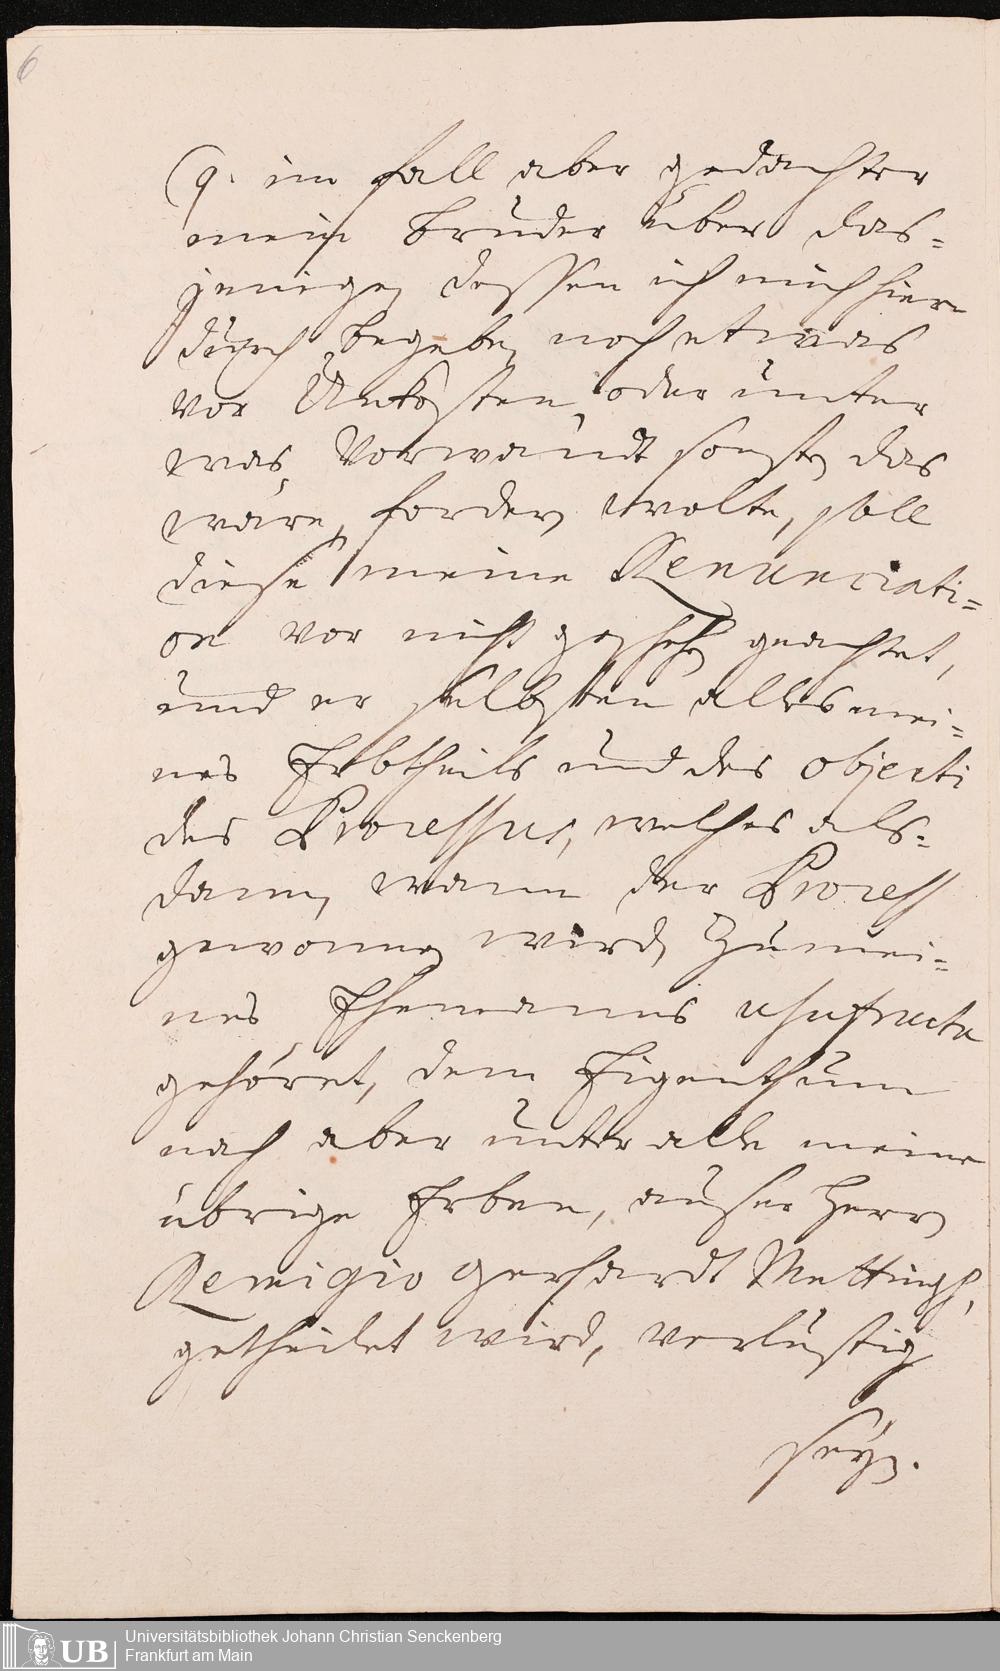 6
(9. im fall aber gedachter
mein Bruder über das=
jenige, dessen ich mich hier-
durch begeben noch etwas
vor Unkosten, oder unter
was Vorwandt sonsten das
wäre, fordern wolte, soll
diese meine Renunciati=
on vor nicht geschehen geachtet,
und er selbsten alles mei=
nes Erbtheils und des objecti
des Processus, welches als=
dann, wann der Process
gewonnen wird, zu mei=
nes Ehemanns usufructu
gehöret, dem Eigenthum
nach aber unter alle meine
übrige Erben, auser Herrn
Remigio Gerhardt Mettingh,
getheilet wird, verlustig
seyn.
UB Universitätsbibliothek Johann Christian Senckenberg
Frankfurt am Main